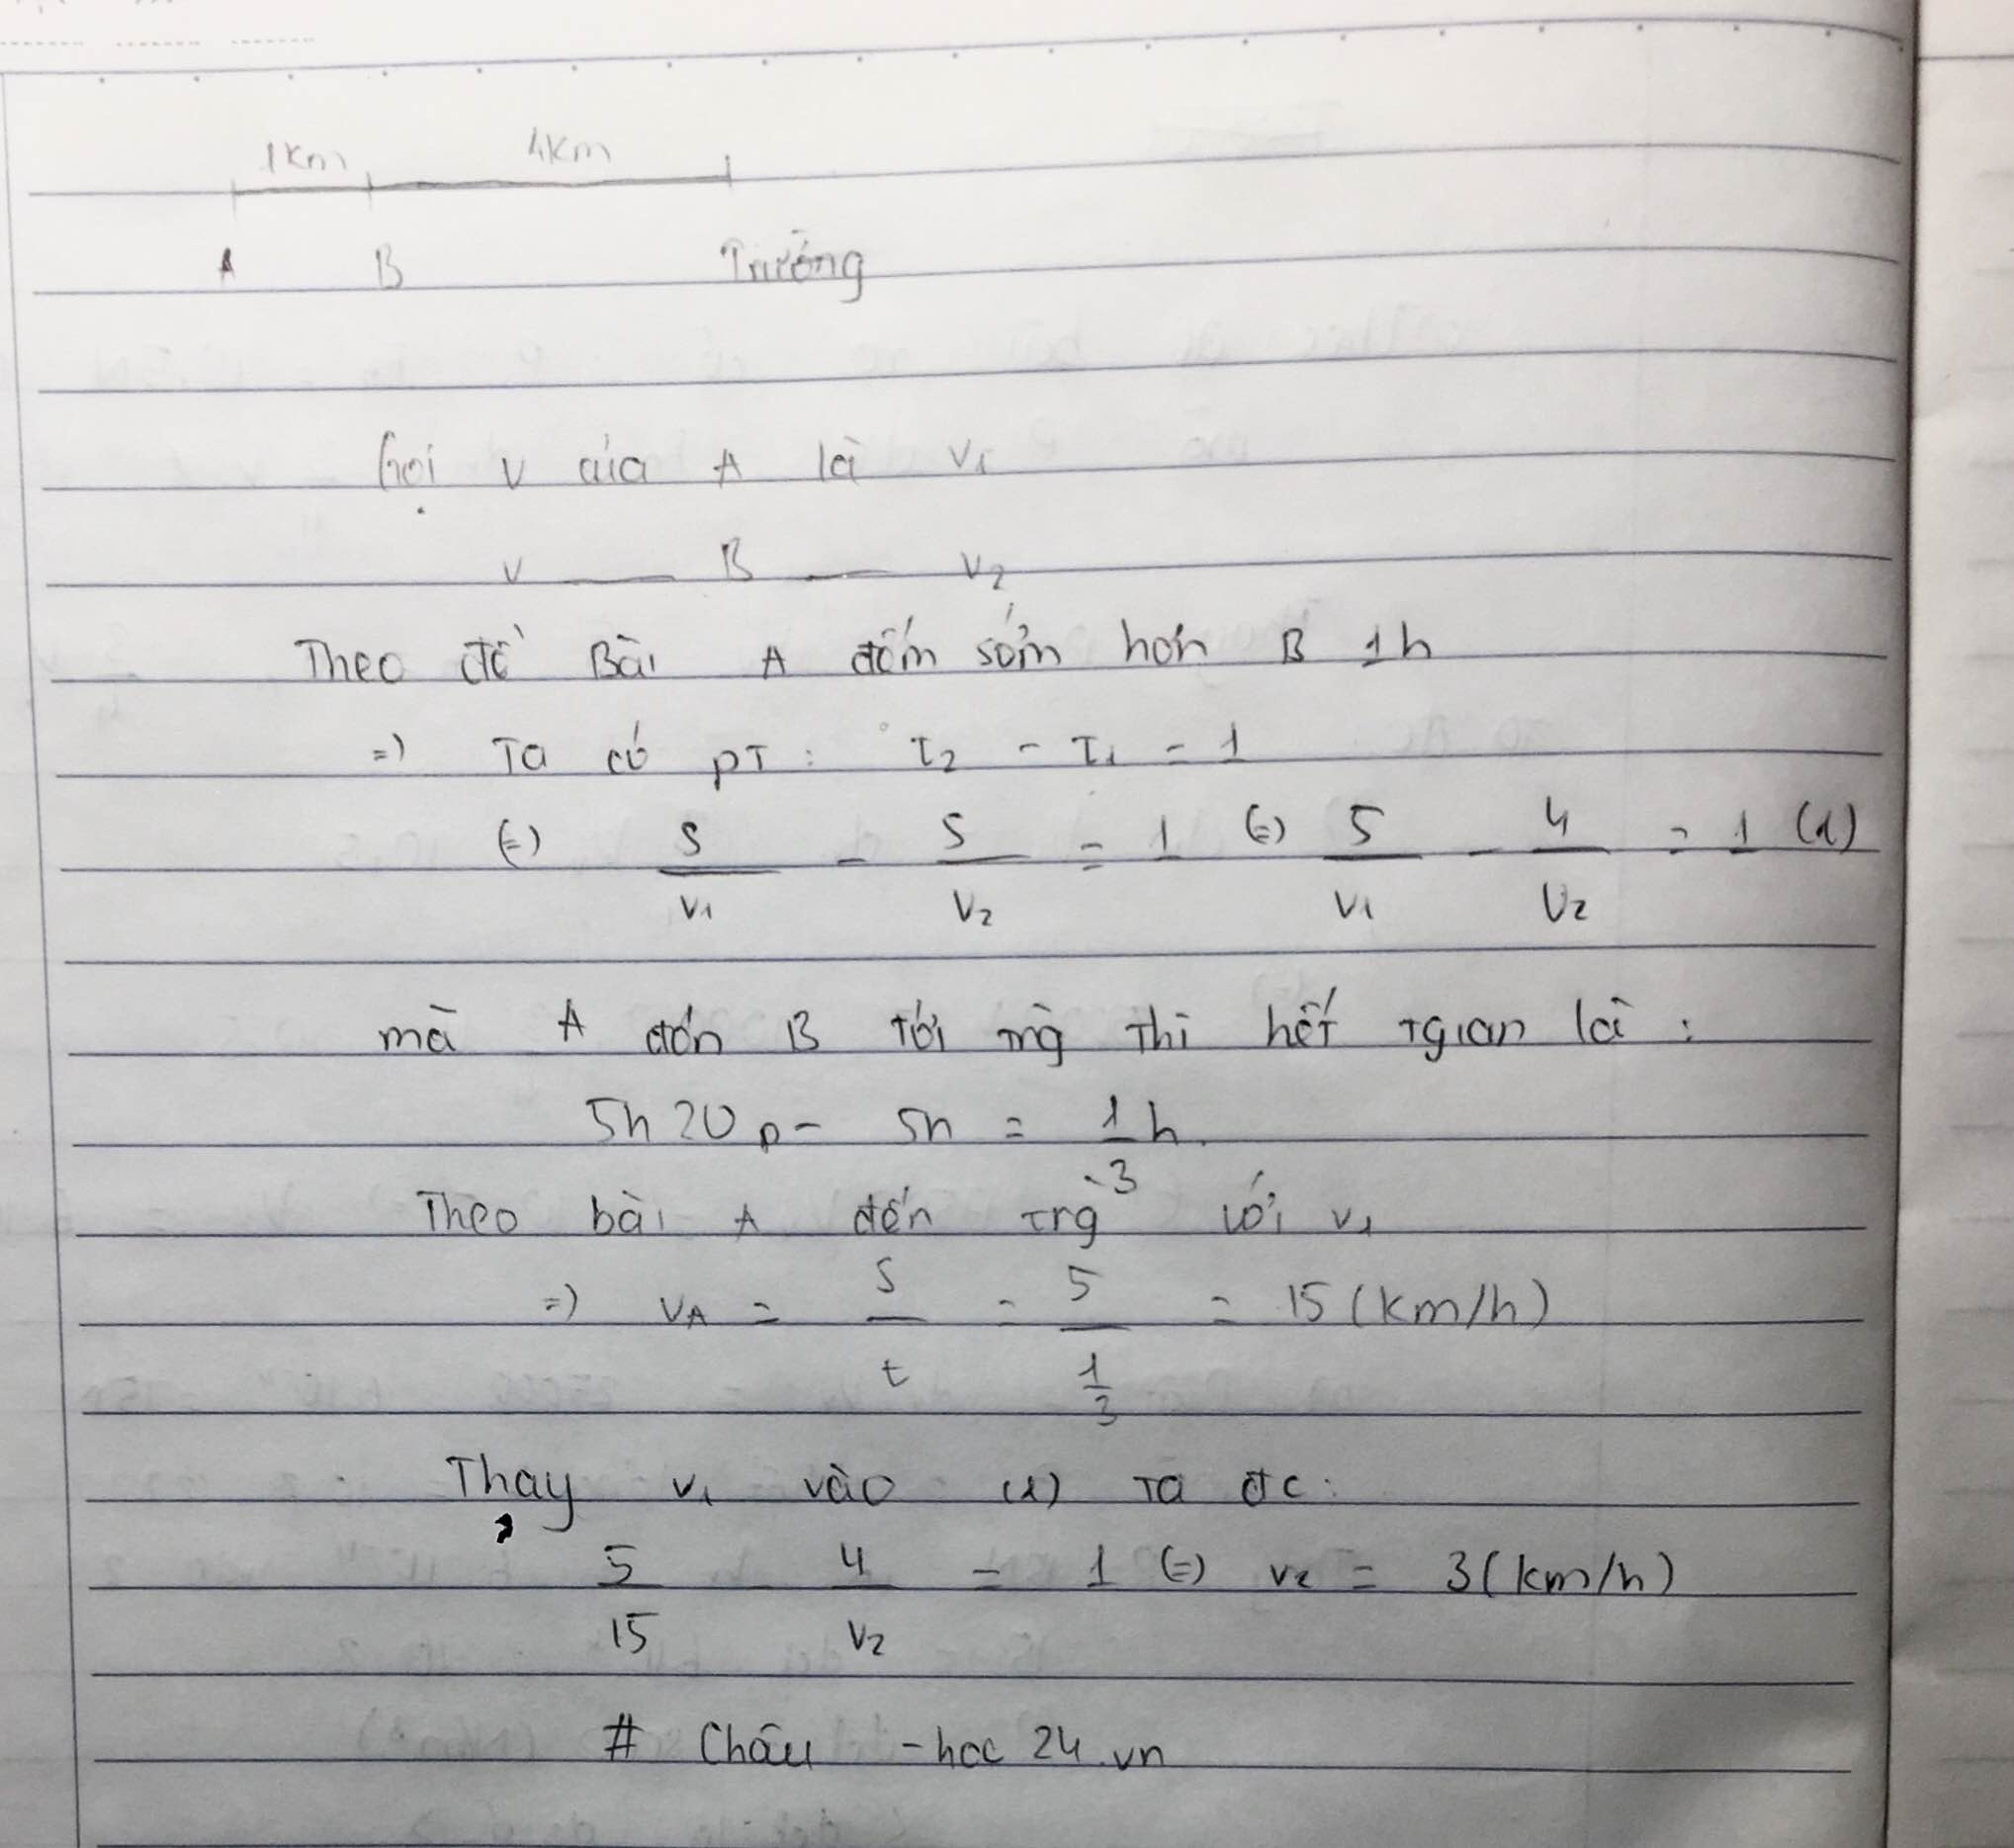 1km 4km
A B Trường
Gọi v của A là v₁
v — B — v₂
Theo đề Bài A đến sớm hơn B 1h
=) Ta có pT : t₂ - t₁ = 1
(=) S/v₁ - S/v₂ = 1 (=) 5/v₁ - 4/v₂ = 1 (1)
mà A đón B tới trg thì hết tgian là :
5h20p - 5h = 1/3 h.
Theo bài A đến trg với v₁
=) vA = S/t = 5/(1/3) = 15 (km/h)
Thay v₁ vào (1) ta đc :
5/15 - 4/v₂ = 1 (=) v₂ = 3 (km/h)
# Châu - hoc 24.vn